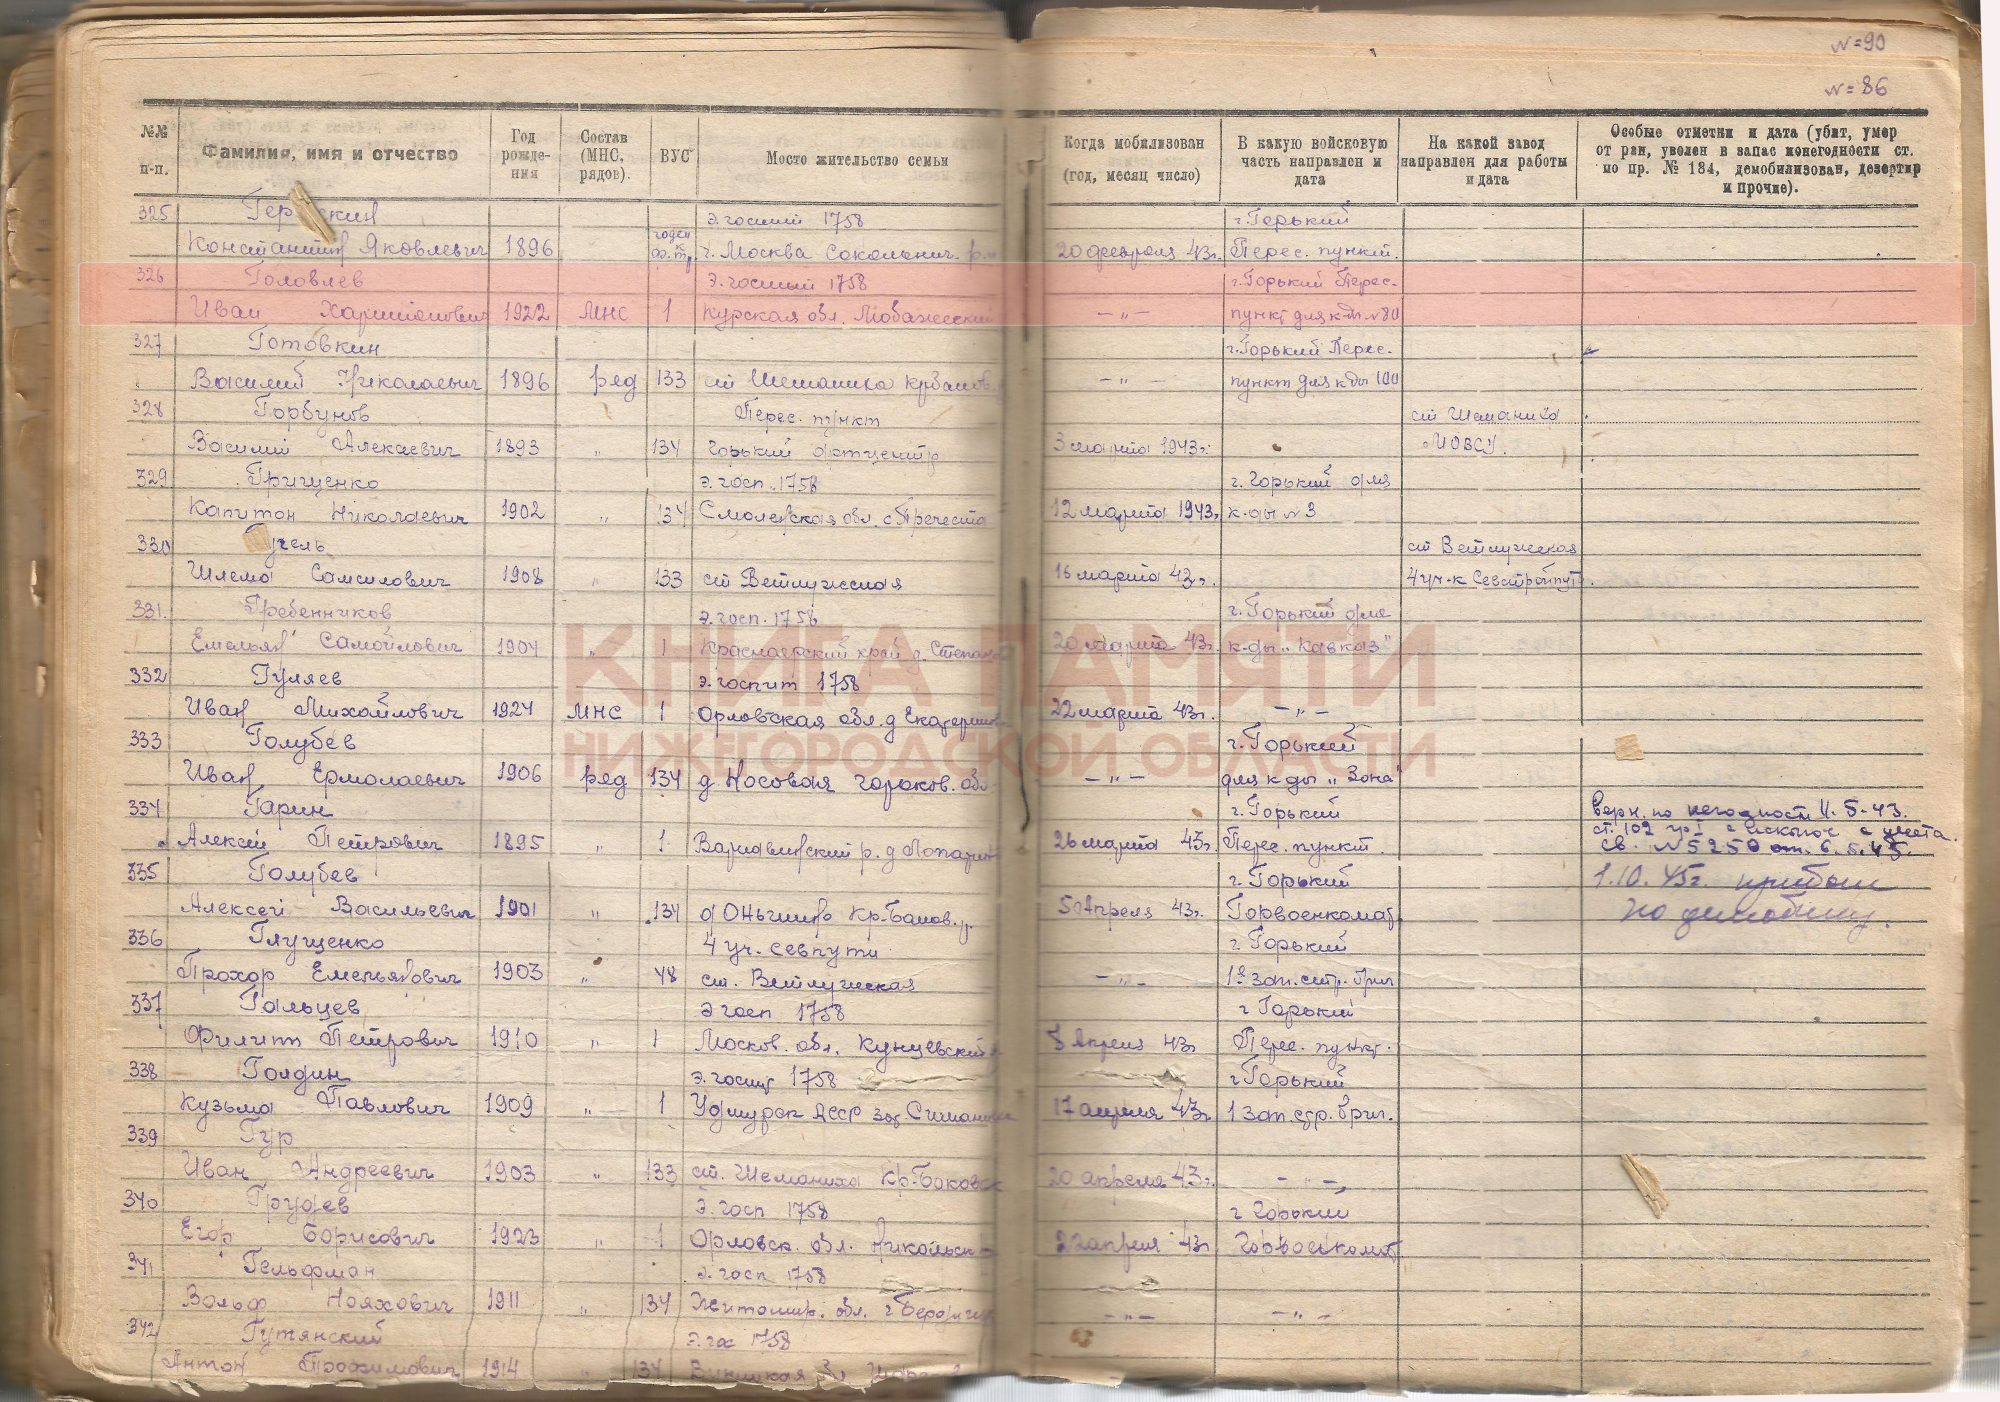 N=90
N=86
№№ п-п.
Фамилия, имя и отчество
Год рожде-ния
Состав (МНС, рядов).
ВУС
Место жительство семьи
Когда мобилизован (год, месяц число)
В какую войсковую часть направлен и дата
На какой завод направлен для работы и дата
Особые отметки и дата (убит, умер от ран, уволен в запас понегодности ст. по пр. № 184, демобилизован, дезертир и прочие).
325 э. госпит 1758 г. Горький
Константин Яковлевич 1896 годен ф. т. г. Москва 20 февраля 43г. Перес. пункт.
326 Головлев э. госпит 1758 г. Горький Перес.
Иван Харитонович 1922 МНС 1 Курская обл. — „ — пункт для к-ды N 80
327 Готовкин г. Горький Перес.
Василий Николаевич 1896 ряд 133 ст Шеманиха — „ — пункт для к-ды 100
328 Горбунов Перес. пункт ст Шеманиха
Василий Алексеевич 1893 „ 134 Горький 3 марта 1943г. МОВСУ.
329 Грищенко э. госп. 1758 г. Горький для
Капитон Николаевич 1902 „ 134 Смоленская обл. 12 марта 1943г. к-ды N 3
330 ст Ветлужская
Шлема Самсилович 1908 „ 133 ст Ветлужская 16 марта 43г. 4 уч-к Севстройпути
331. Гребенников э. госп. 1758 г. Горький для
Емельян Самойлович 1904 „ 1 край д. 20 марта 43г. к-ды „Кавказ"
332 Гуляев э. госпит 1758
Иван Михайлович 1924 МНС 1 Орловская обл. д 22 марта 43г. — „ —
333 Голубев г. Горький
Иван Ермолаевич 1906 ряд 134 д. Носовая горьков. обл. — „ — для к-ды „Зона"
334 Гарин г. Горький Верн. по негодност 11.5-43.
Алексей Петрович 1895 „ 1 Варнавинский р. д 26 марта 43г. Перес. пункт. ст. 102 гр I с исключ с учета.
св. N 5250 от. 6.5.45.
335 Голубев г. Горький 1.10.45г. прибыл
Алексей Васильевич 1901 „ 134 д 5 Апреля 43г. Горвоенкомат. по демобилиз.
336 Глущенко 4 уч. Севпути г. Горький
Прохор Емельянович 1903 „ 48 ст. Ветлужская — „ — 1й зап. стр. бриг
337 Гольцев э госп 1758 г Горький
Филипп Петрович 1910 „ 1 Москов. обл. Кунцевский 8 Апреля 43г Перес. пункт.
338 Голдин э. госпит 1758 г Горький
Кузьма Павлович 1909 „ 1 Удмурск АССР 17 апреля 43г. 1 зап. стр. бриг.
339 Гур
Иван Андреевич 1903 „ 133 ст. Шеманиха Кр-Баковск 20 апреля 43г. — „ —
340 Грудев э. госп 1758 г Горький
Егор Борисович 1923 „ 1 Орловск. обл. Никольск 22 апреля 43г Горвоенкомат
341 Гельфман э. госп 1758
Вольф Нояхович 1911 „ 134 Житомир. обл. г Бердичев — „ — — „ —
342 Гутянский э. гос 1758
Антон Трофимович 1914 „ 134
КНИГА ПАМЯТИ
НИЖЕГОРОДСКОЙ ОБЛАСТИ